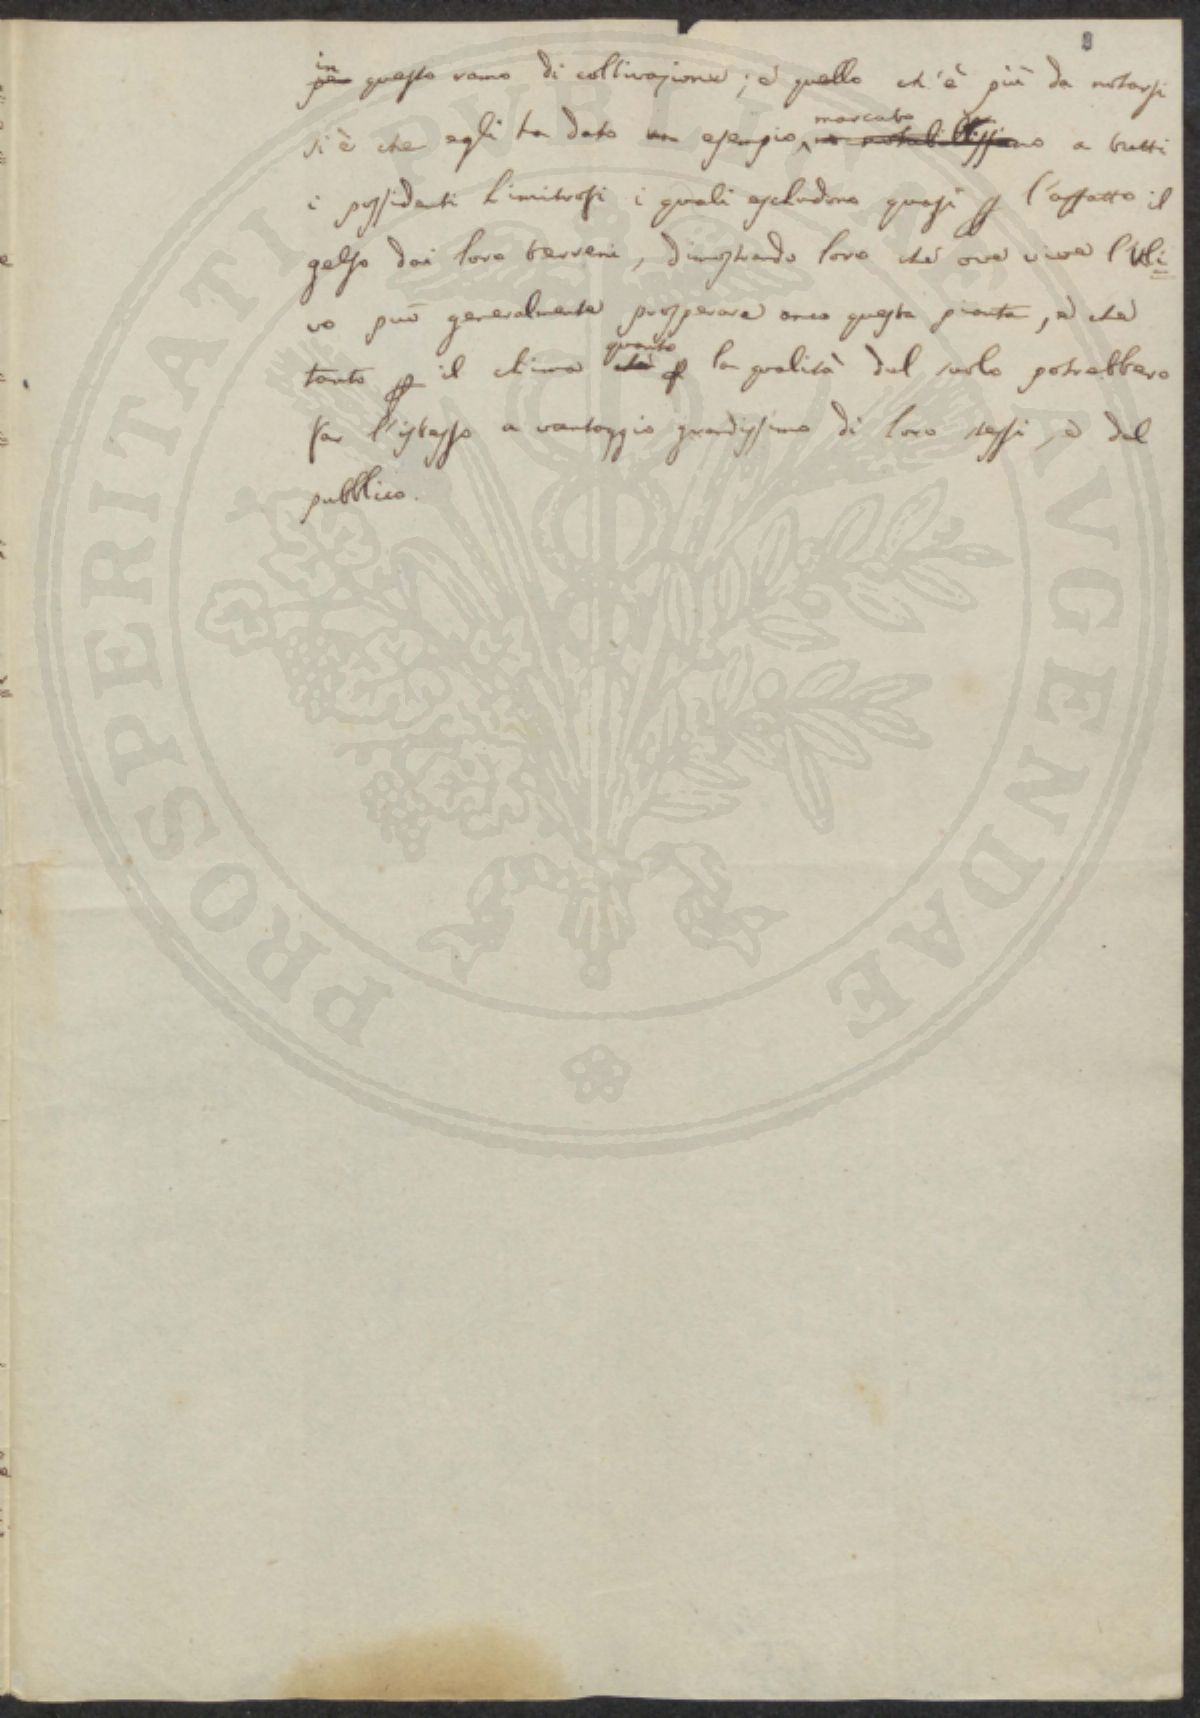 8
in
per questo ramo di coltivazione; e quello ch'è più da notarsi
marcato
si è che egli ha dato un esempio notabilissimo a tutti
i possidenti limitrofi i quali escludono quasi p l'affatto il
gelso dai loro terreni, dimostrando loro che ove vive l'Uli=
vo può generalmente prosperare anco questa pianta, e che
quanto
tanto p il clima che p la qualità del suolo potrebbero
far l'istesso a vantaggio grandissimo di loro stessi, e del
pubblico.
PROSPERITATI PVBLICAE AVGENDAE